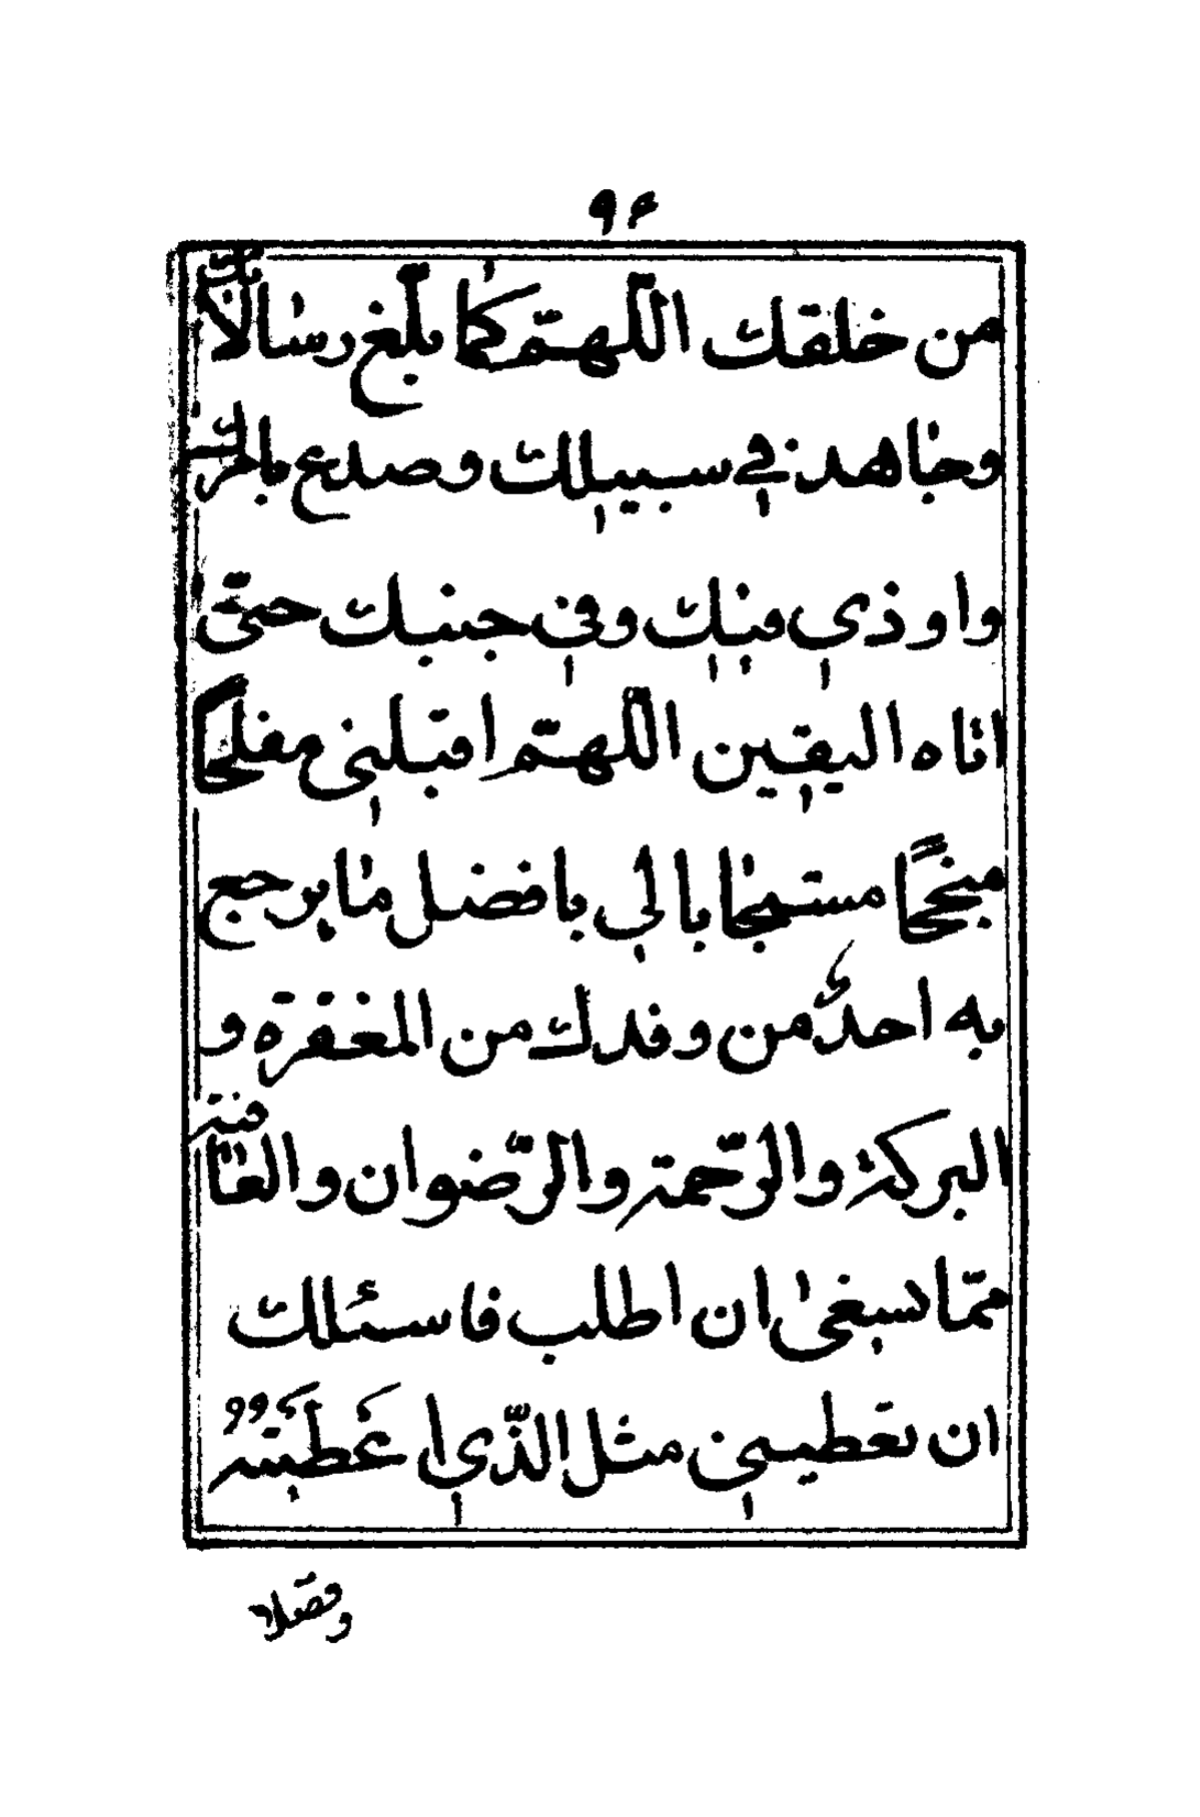 ۹۶
من خلقك اللّهمّ كما بلّغ رسالاتك
وجاهد في سبيلك وصدع بامرك
واوذي فيك وفي جنبك حتّى
اتاه اليقين اللّهمّ اقبلني مفلحًا
منجحًا مستجابا لي بافضل ما يرجع
به احدٌ من وفدك من المغفرة و
البركة والرّحمة والرّضوان والعافية
ممّا يسبغى ان اطلب فاسئلك
ان تعطيني مثل الّذي اَعطَيته